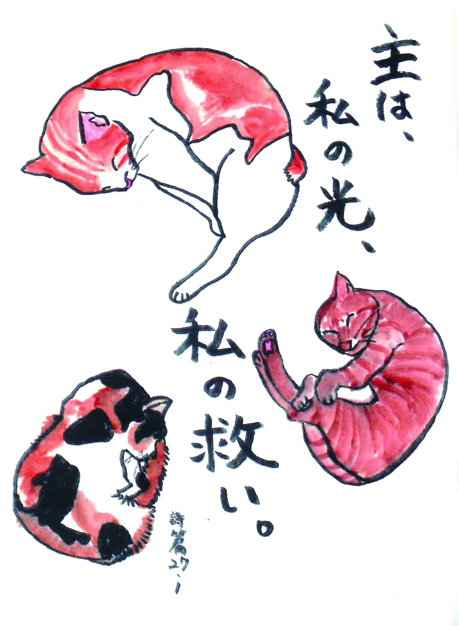 主は、
私の光、
私の救い。
詩篇27・1